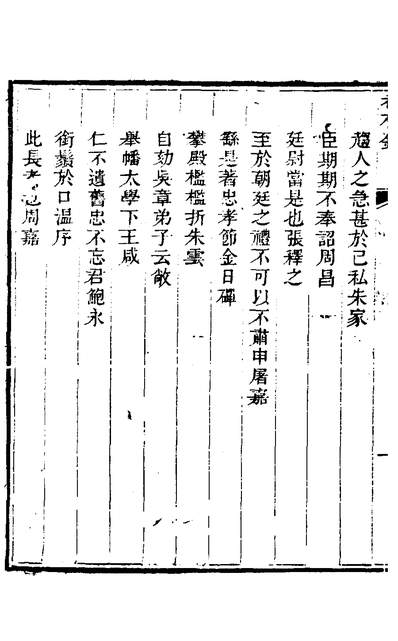 趨人之急甚於己私朱家
臣期期不奉詔周昌
廷尉當是也張釋之
至於朝廷之禮不可以不肅申屠嘉
繇是著忠孝節金日磾
攀殿檻檻折朱雲
自劾吳章弟子云敞
舉幡太學下王咸
仁不遺舊忠不忘君鮑永
銜鬚於口溫序
此長者也周嘉